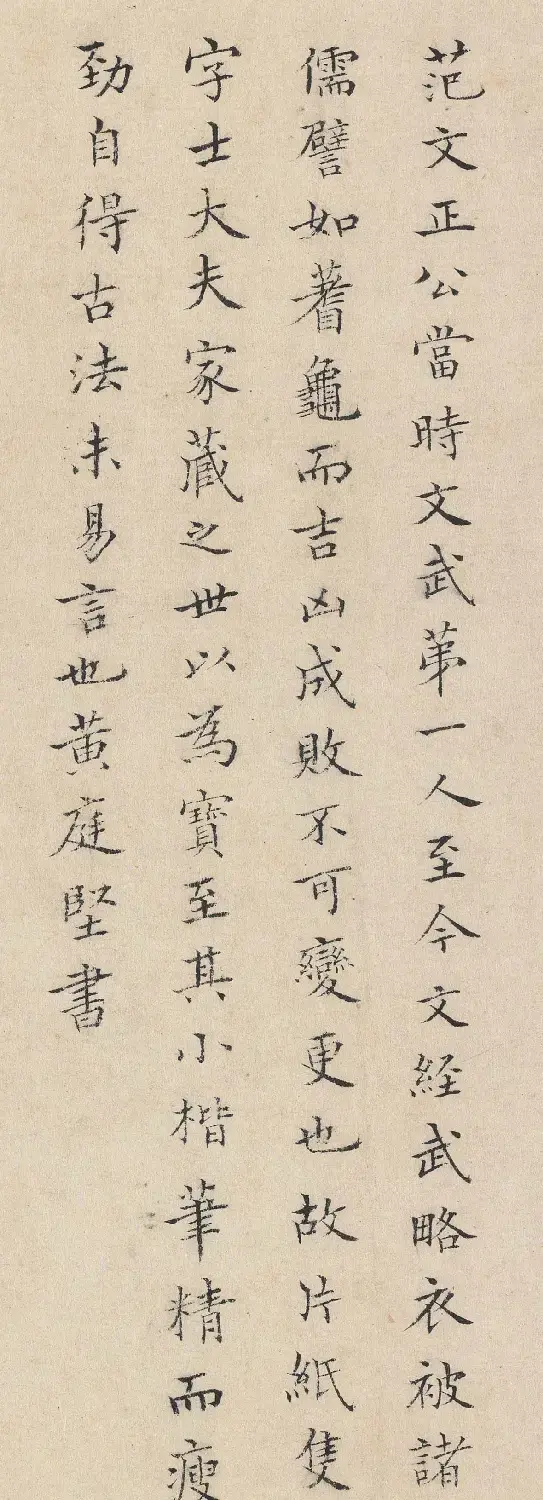 范文正公當時文武苐一人至今文經武略衣被諸
儒譬如蓍龜而吉凶成敗不可變更也故片紙隻
字士大夫家藏之世以為寶至其小楷筆精而瘦
勁自得古法未易言也黄庭堅書